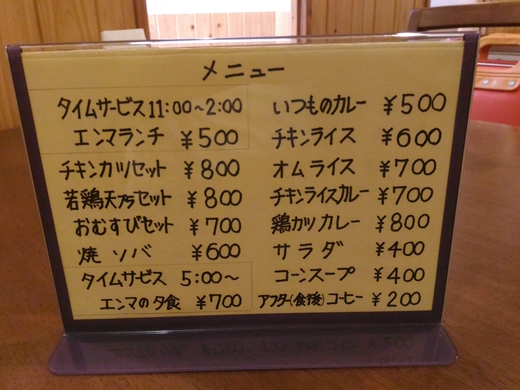 メニュー
タイムサービス 11:00~2:00
エンマランチ ¥500
チキンカツセット ¥800
若鶏天プラセット ¥800
おむすびセット ¥700
焼ソバ ¥600
タイムサービス 5:00~
エンマの夕食 ¥700
いつものカレー ¥500
チキンライス ¥600
オムライス ¥700
チキンライスカレー ¥700
鶏カツカレー ¥800
サラダ ¥400
コーンスープ ¥400
アフター(食後)コーヒー ¥200